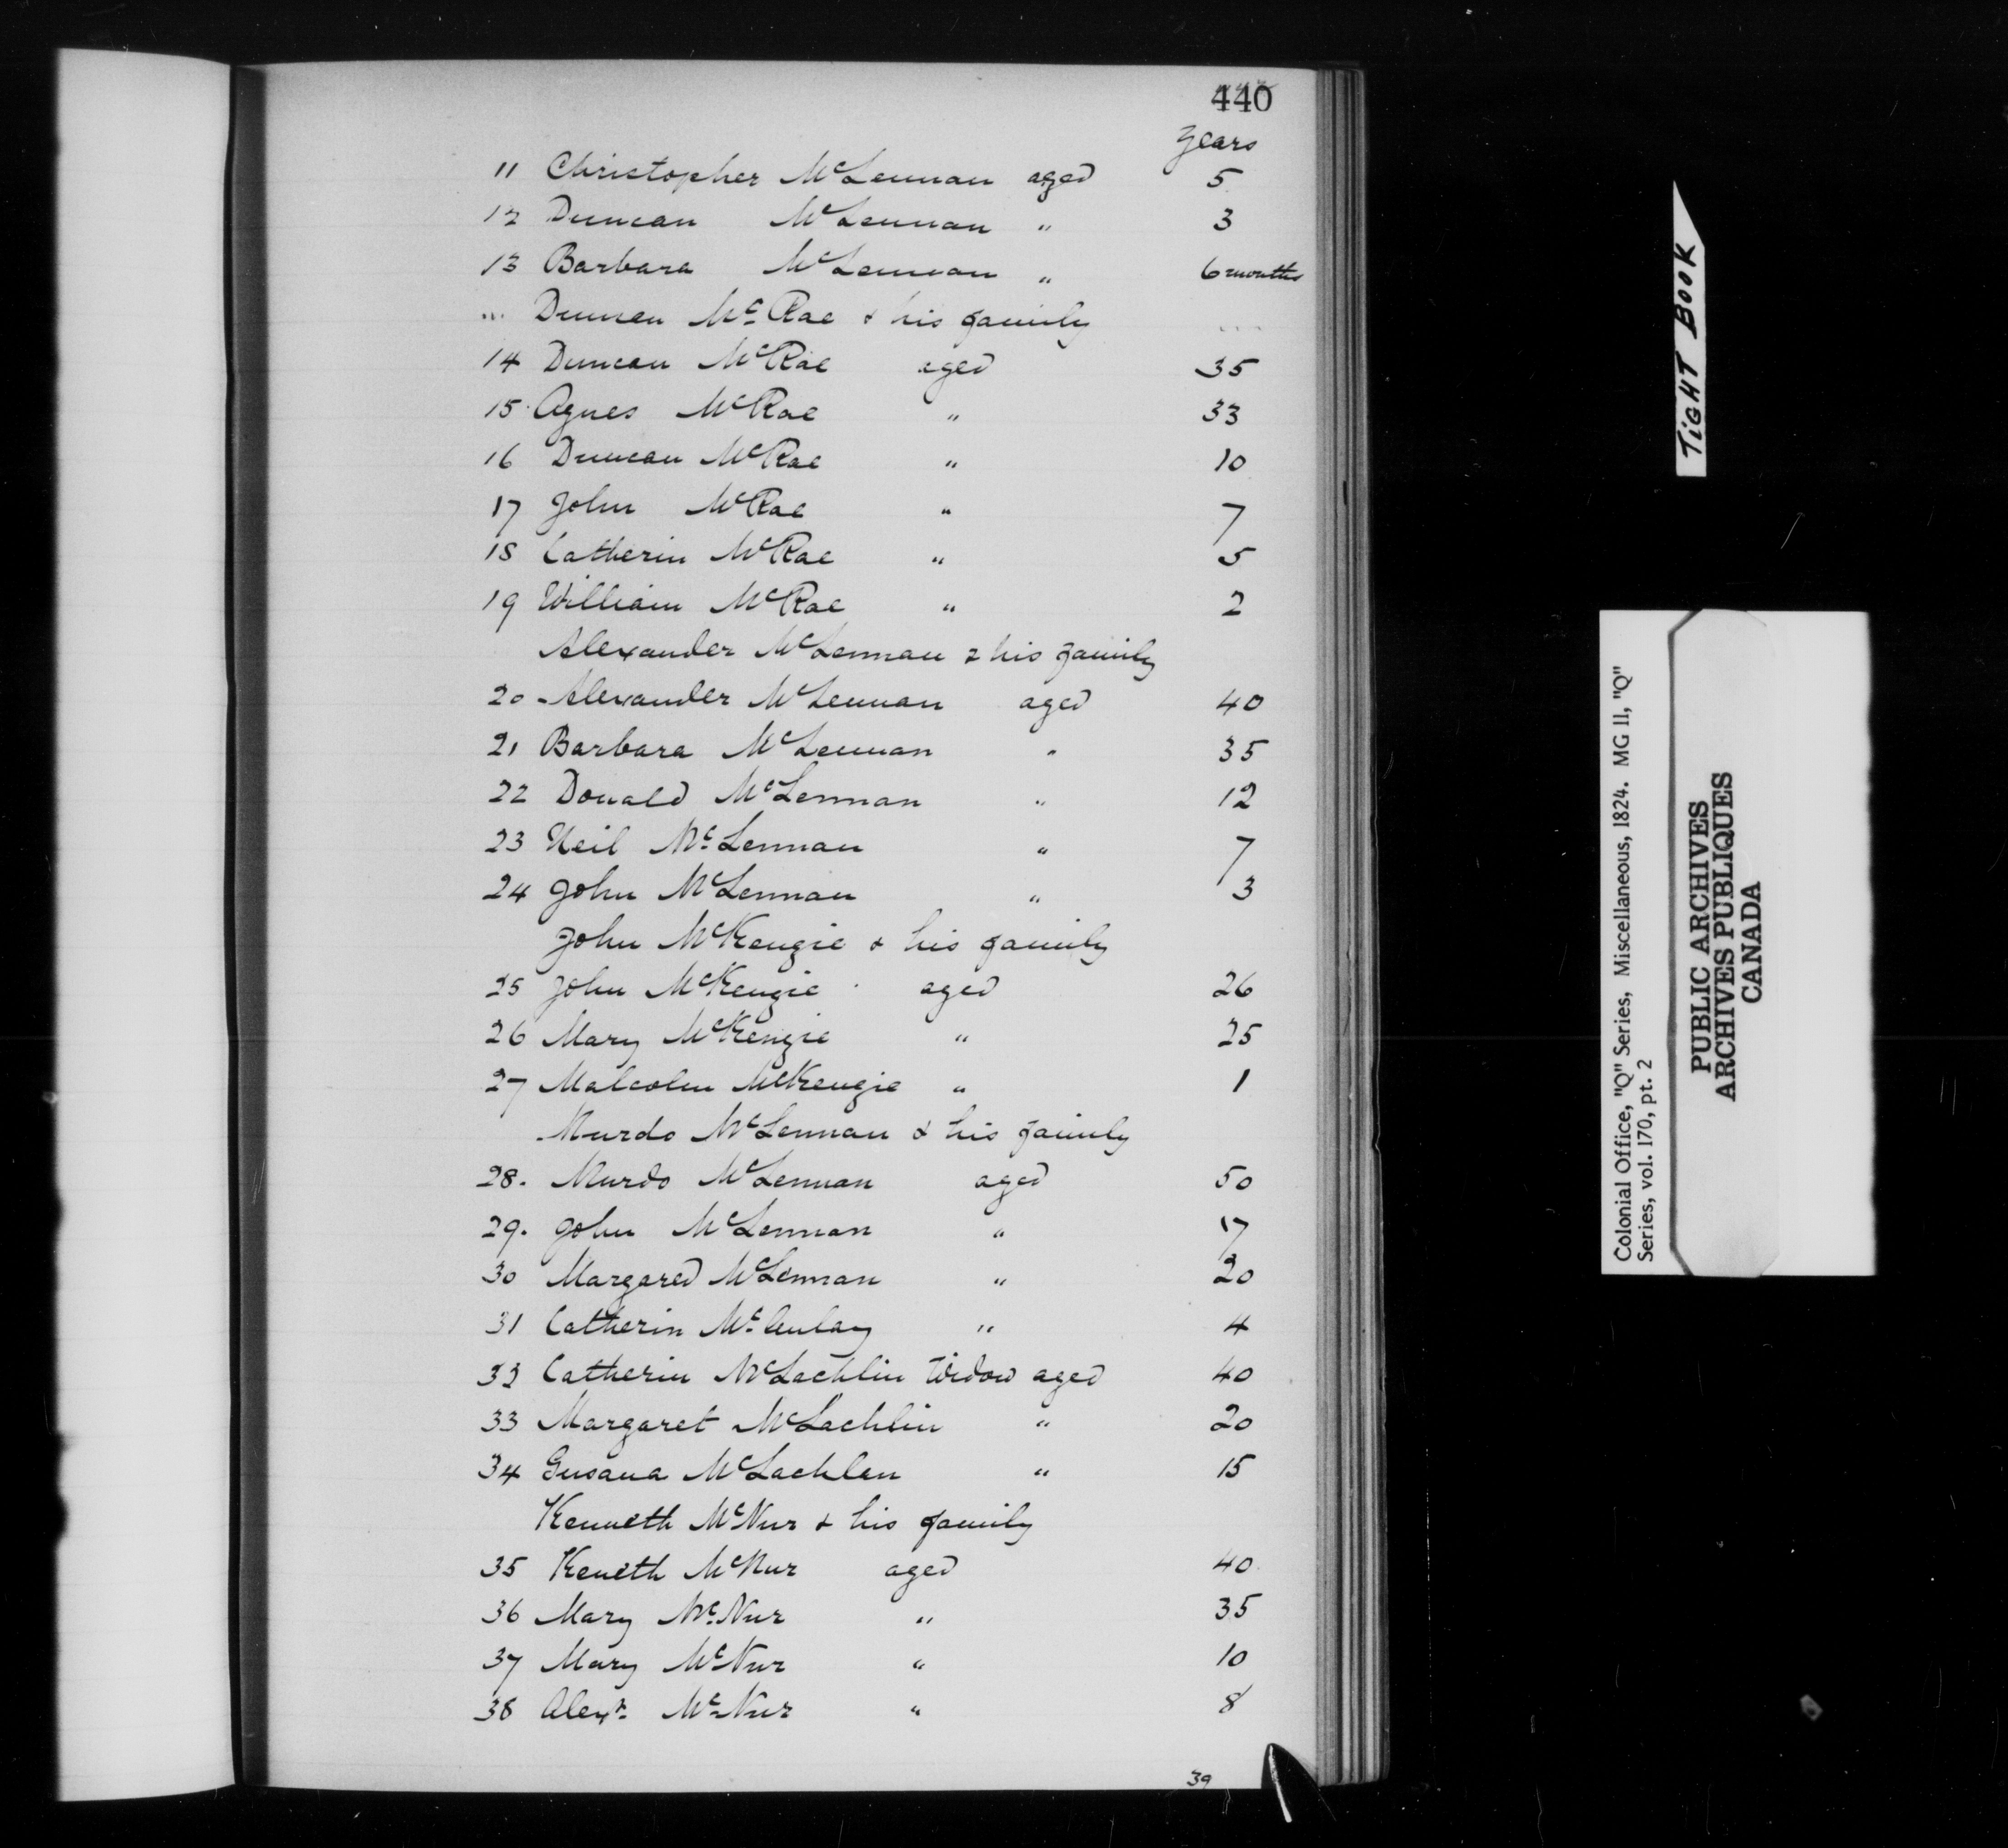 440
Years
11 Christopher McLennan aged 5
12 Duncan McLennan " 3
13 Barbara McLennan " 6 months
... Duncan McRae & his family ...
14 Duncan McRae aged 35
15 Agnes McRae " 33
16 Duncan McRae " 10
17 John McRae " 7
18 Catherin McRae " 5
19 William McRae " 2
Alexander McLennan & his family
20 Alexander McLennan aged 40
21 Barbara McLennan " 35
22 Donald McLennan " 12
23 Neil McLennan " 7
24 John McLennan " 3
John McKenzie & his family
25 John McKenzie aged 26
26 Mary McKenzie " 25
27 Malcolm McKenzie " 1
Murdo McLennan & his family
28. Murdo McLennan aged 50
29. John McLennan " 17
30 Margared McLennan " 20
31 Catherin McAulay " 4
32 Catherin McLachlin Widow aged 40
33 Margaret McLachlin " 20
34 Susana McLachlan " 15
Kenneth McNur & his family
35 Keneth McNur aged 40
36 Mary McNur " 35
37 Mary McNur " 10
38 Alexr. McNur " 8
39
TIGHT BOOK
Colonial Office, "Q" Series, Miscellaneous, 1824. MG 11, "Q"
Series, vol. 170, pt. 2
PUBLIC ARCHIVES
ARCHIVES PUBLIQUES
CANADA